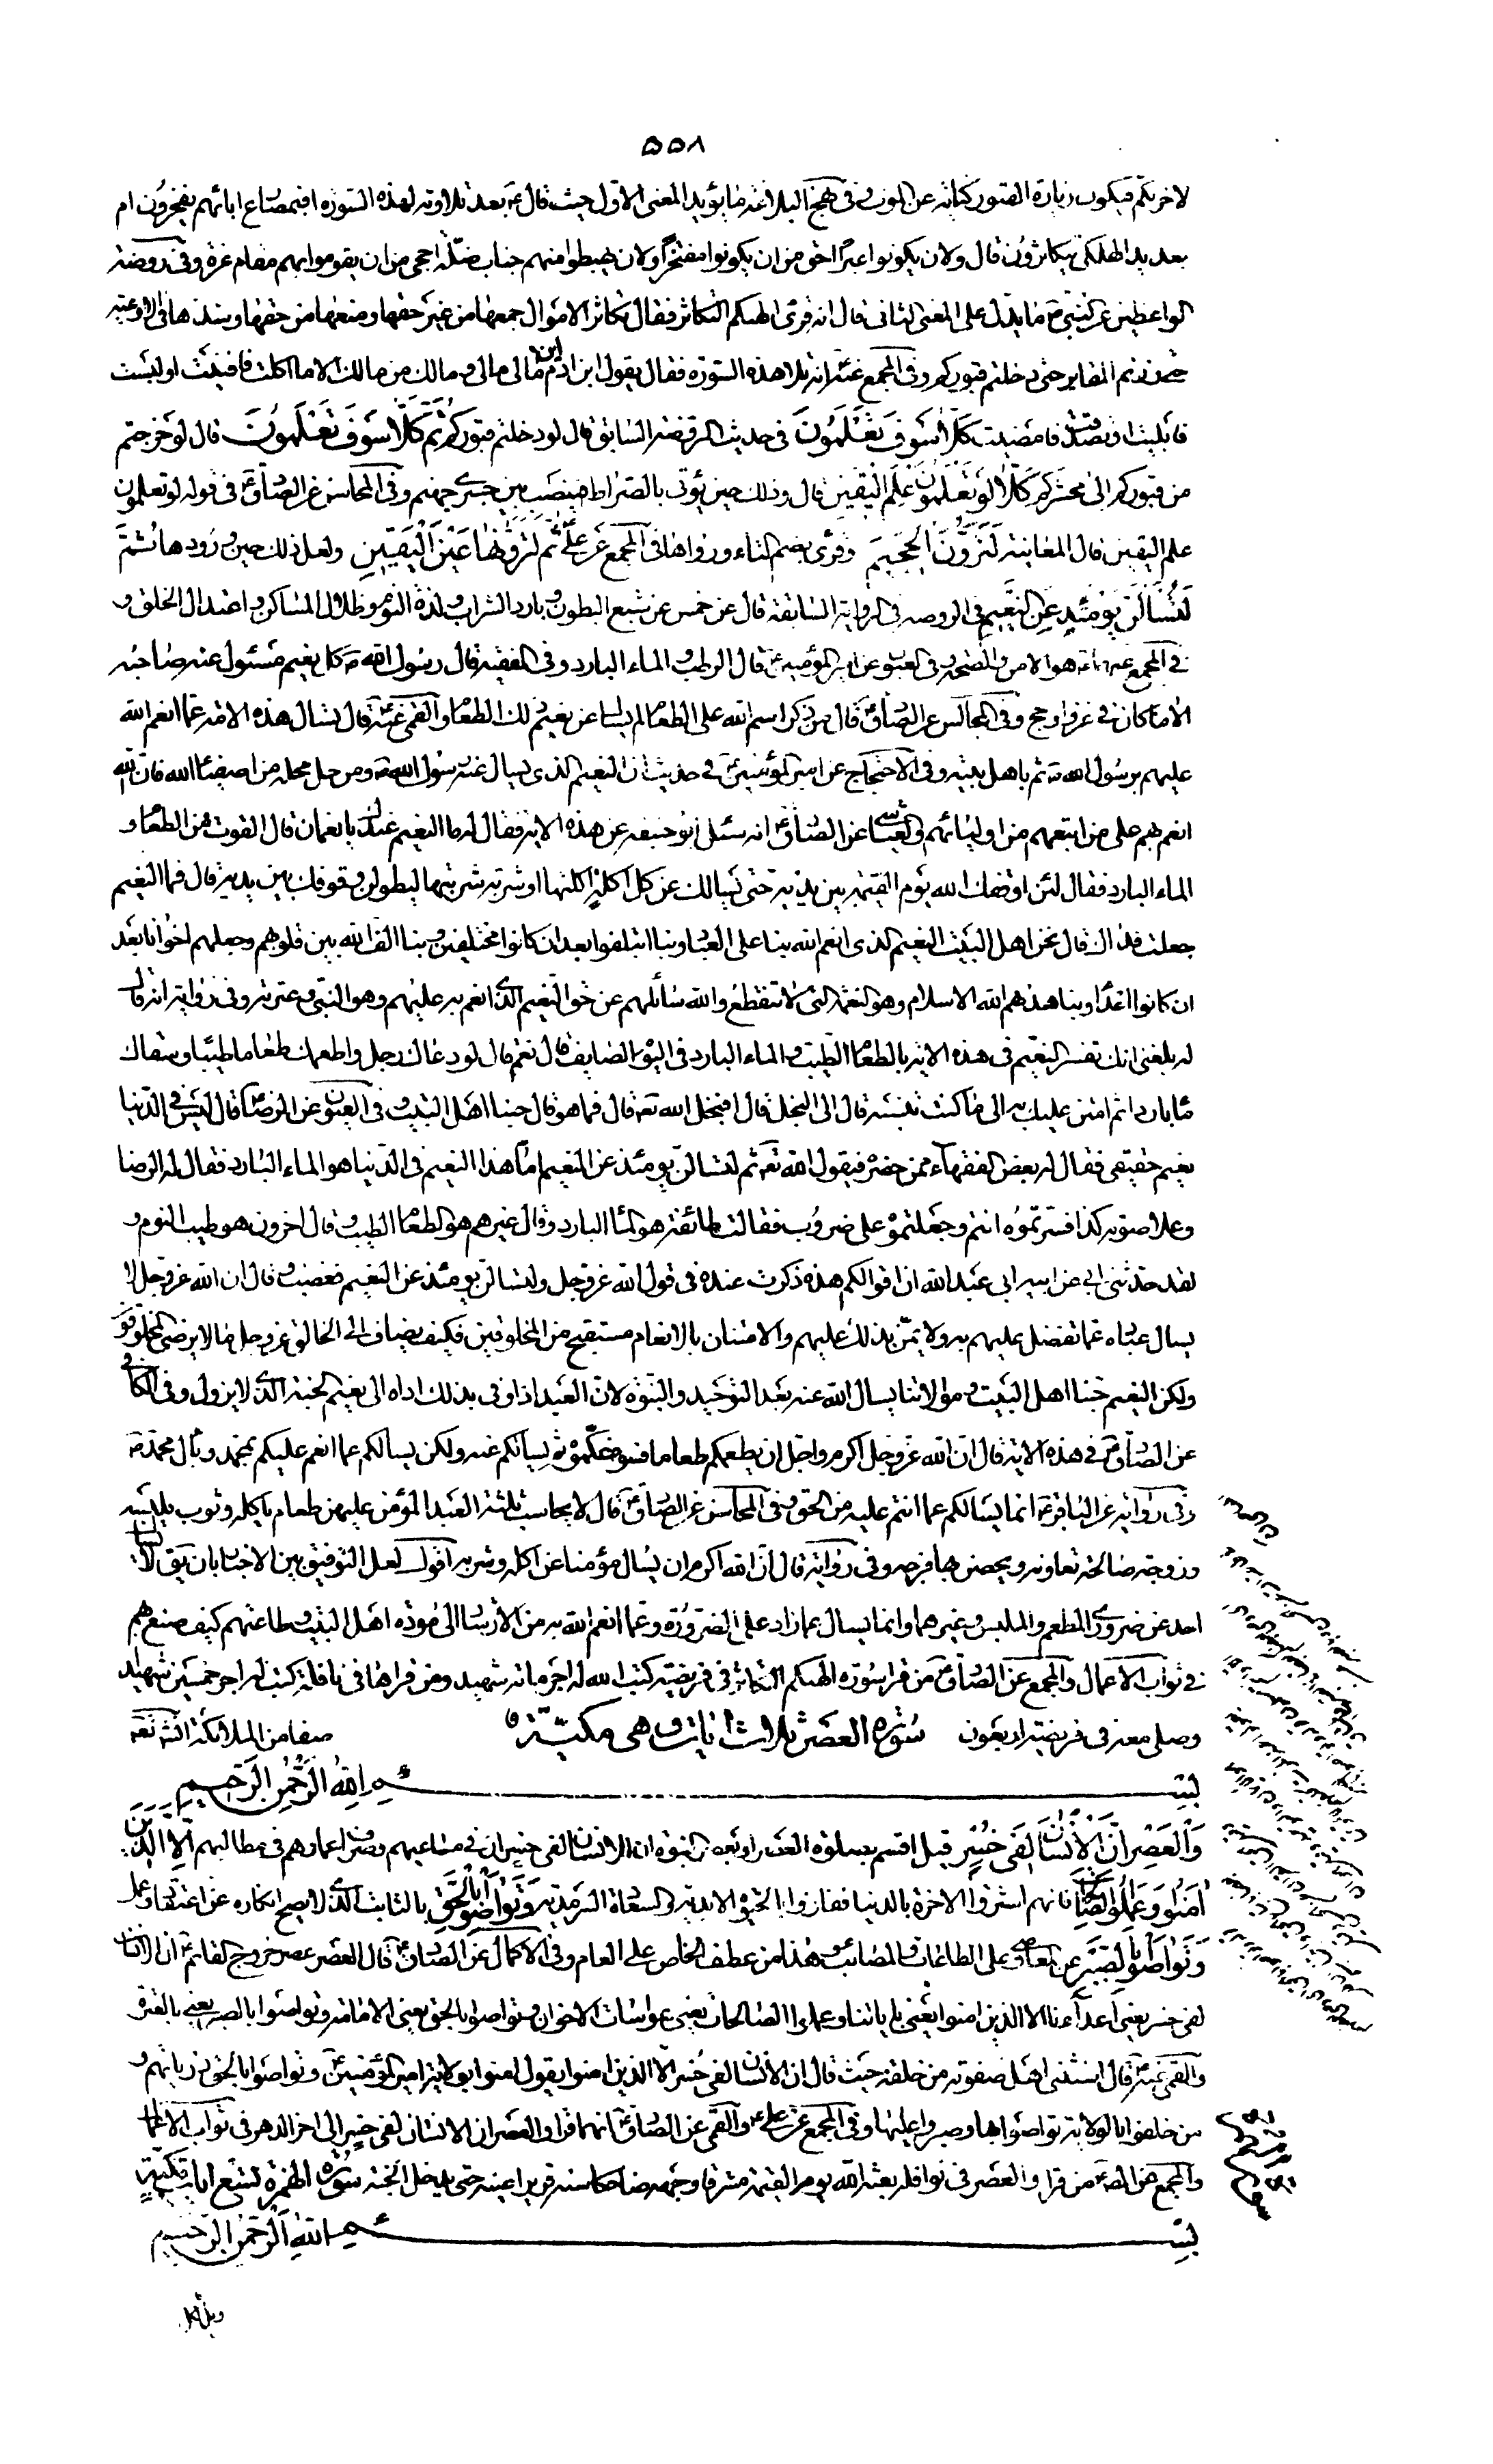 ٥٥٨
لاخرتكم فيكون زيارة القبور كناية عن الموت وفى نهج البلاغة ما يؤيد المعنى الاول حيث قال ع بعد تلاوته لهذه السورة افبمصارع ابائهم يفخرون ام
بعديد الهلكى يتكاثرون قال ولان يكونوا عبرا احق من ان يكونوا مفتخرا ولان يهبطوا منهم جناب ذلة احجى من ان يقوموا بهم مقام عزة وفى روضة
الواعظين عن النبى ص ما يدل على المعنى الثانى قال انه قرئ الهيكم التكاثر فقال تكاثر الاموال جمعها من غير حقها ومنعها من حقها وشدها فى الاوعية
حتى زرتم المقابر حتى دخلتم قبوركم وفى المجمع عنه ص انه تلا هذه السورة فقال يقول ابن ادم مالى مالى وما لك من مالك الا ما اكلت فافنيت او لبست
فابليت او تصدقت فامضيت كَلّا سَوْفَ تَعْلَمُونَ فى حديث الروضة السابق قال لو دخلتم قبوركم ثُمَّ كَلّا سَوْفَ تَعْلَمُونَ قال لو خرجتم
من قبوركم الى محشركم كَلّا لَوْ تَعْلَمُونَ عِلْمَ الْيَقِينِ قال وذلك حين يؤتى بالصراط فينصب بين جسرى جهنم وفى المحاسن عن الصادق ع فى قوله لو تعلمون
علم اليقين قال المعاينة لَتَرَوُنَّ الْجَحِيمَ وقرئ بضم التاء ورواها فى المجمع عن على ع ثُمَّ لَتَرَوُنَّها عَيْنَ الْيَقِينِ ولعل ذلك حين ورودها ثُمَّ
لَتُسْأَلُنَّ يَوْمَئِذٍ عَنِ النَّعِيمِ فى الروضة فى الرواية السابقة قال عن خمس عن شبع البطون وبارد الشراب ولذة النوم وظلال المساكن واعتدال الخلق و
فى المجمع عنهما ع هو الامن والصحة وفى العيون عن امير المؤمنين ع قال الرطب والماء البارد وفى الفقيه قال رسول الله ص كل نعيم مسئول عنه صاحبه
الا ما كان فى غزو او حج وفى المجالس عن الصادق ع قال من ذكر اسم الله على الطعام لم يسئل عن نعيم ذلك الطعام والقمى عنه ع قال يسئال هذه الامة عما انعم الله
عليهم برسول الله ص ثم باهل بيته وفى الاحتجاج عن امير المؤمنين ع فى حديث ان النعيم الذى يسال عنه رسول الله ص ومن حل محله من اصفياء الله فان الله
انعم بهم على من اتبعهم من اوليائهم والعياشى عن الصادق ع انه سئله ابو حنيفه عن هذه الاية فقال له ما النعيم عندك يا نعمان قال القوت من الطعام و
الماء البارد فقال لئن اوقفك الله يوم القيمة بين يديه حتى يسالك عن كل اكلة اكلتها او شربة شربتها ليطولن وقوفك بين يديه قال فما النعيم
جعلت فداك قال نحن اهل البيت النعيم الذى انعم الله بنا على العباد وبنا ائتلفوا بعد ان كانوا مختلفين وبنا الف الله بين قلوبهم وجعلهم اخوانا بعد
ان كانوا اعداء وبنا هذاهم الله الاسلام وهو النعمة التى لا تنقطع والله سائلهم عن حق النعيم الذى انعم به عليهم وهو النبى وعترته وفى رواية انه قال
له بلغنى انك تفسر النعيم فى هذه الاية بالطعام الطيب والماء البارد فى اليوم الصايف قال نعم قال لو دعاك رجل واطعمك طعاما طيبا وسقاك
ماء باردا ثم امتن عليك به الى ما كنت تنسبه قال الى البخل قال افيبخل الله تعه قال فما هو قال حبنا اهل البيت وفى العيون عن الرضا ع قال ليس فى الدنيا
نعيم حقيقى فقال له بعض الفقهاء ممن حضره فيقول الله تعه ثم لتسالن يومئذ عن النعيم اما هذا النعيم فى الدنيا هو الماء البارد فقال له الرضا
وعلا صوته كذا فسرتموه انتم وجعلتموه على ضروب فقالت طائفة هو الماء البارد وقال غيرهم هو الطعام الطيب وقال اخرون هو طيب النوم و
لقد حدثنى ابى عن ابيه ابى عبد الله ان اقوالكم هذه ذكرت عنده فى قول الله عزوجل ولتسالن يومئذ عن النعيم فغضب وقال ان الله عزوجل لا
يسال عباده عما تفضل عليهم به ولا يمن بذلك عليهم والامتنان بالانعام مستقبح من المخلوقين فكيف يضاف الى الخالق عزوجل ما لا يرضى المخلوق به
ولكن النعيم حبنا اهل البيت وموالاتنا يسال الله عنه بعد التوحيد والنبوة لان العبد اذا وفى بذلك اداه الى نعيم الجنة الذى لا يزول وفى الكافى
عن الصادق ع فى هذه الاية قال ان الله عزوجل اكرم واجل ان يطعمكم طعاما فسوغكموه ثم يسالكم عنه ولكن يسالكم عما انعم عليكم بمحمد وبآل محمد ص
وفى رواية عن الباقر ع انما يسالكم عما انتم عليه من الحق وفى المحاسن عن الصادق ع قال لا يحاسب ثلثة العبد المؤمن عليهن طعام ياكله وثوب يلبسه
وزوجة صالحة تعاونه ويحصن بها فرجه وفى رواية قال ان الله اكرم ان يسال مؤمنا عن اكله وشربه اقول لعل التوفيق بين الاخبار بان يق لا يسال
احد عن ضرورى المطعم والملبس وغيرهما وانما يسال عما زاد على الضرورة وعما انعم الله به من الارشاد الى مودة اهل البيت وطاعتهم كيف صنع بهم
فى ثواب الاعمال والمجمع عن الصادق ع من قرا سورة الهيكم التكاثر فى فريضة كتب الله له اجر مائة شهيد ومن قراها فى نافلة كتب له اجر خمسين شهيد
وصلى معه فى فريضته اربعون صفا من الملائكة انشاء تعه
سورة العصر ثلاث ايات وهى مكية
بِسْمِ اللهِ الرَّحْمنِ الرَّحِيمِ
وَالْعَصْرِ اِنَّ الْاِنْسانَ لَفِى خُسْرٍ قيل اقسم بصلوة العصر او بعصر النبوة ان الانسان لفى خسران فى مساعيهم وصرف اعمارهم فى مطالبهم اِلَّا الَّذِينَ
امَنُوا وَعَمِلُوا الصّالِحاتِ فانهم اشتروا الاخرة بالدنيا ففازوا بالحيوة الابدية والسعادة السرمدية وَتَواصَوْا بِالْحَقِّ بالثابت الذى لا يصح انكاره عن اعتقاد وعمل
وَتَواصَوْا بِالصَّبْرِ عن المعاصى وعلى الطاعات والمصائب وهذا من عطف الخاص على العام وفى الاكمال عن الصادق ع قال العصر عصر خروج القائم ع ان الانسان
لفى خسر يعنى اعداءنا الا الذين امنوا يعنى باياتنا وعملوا الصالحات يعنى بمواسات الاخوان وتواصوا بالحق يعنى الامامة وتواصوا بالصبر يعنى بالفترة
والقمى عنه ع قال استثنى اهل صفوته من خلقه حيث قال ان الانسان لفى خسر الا الذين امنوا يقول امنوا بولاية امير المؤمنين ع وتواصوا بالحق ذرياتهم و
من خلفوا بالولاية تواصوا بها وصبروا عليها وفى المجمع عن على ع والقمى عن الصادق ع انهما قراا والعصر ان الانسان لفى خسر الى اخر الدهر فى ثواب الاعمال
والمجمع عن الص ع من قرا والعصر فى نوافله بعثه الله يوم القيمة مشرقا وجهه ضاحكا سنه قريرا عينه حتى يدخل الجنة سورة الهمزة تسع ايات مكية
بِسْمِ اللهِ الرَّحْمنِ الرَّحِيمِ
ويل لكل